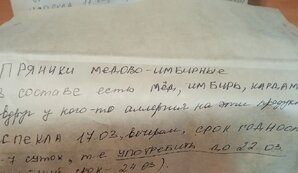 ПРЯНИКИ МЕДОВО-ИМБИРНЫЕ
В СОСТАВЕ ЕСТЬ МЁД, ИМБИРЬ, КАРДАМ
вдруг у кого-то аллергия на эти продук
СПЕКЛА 17.03, вечером, СРОК
-7 суток, т.е УПОТРЕБИТЬ ДО 22.03
СРОК - 24.03).